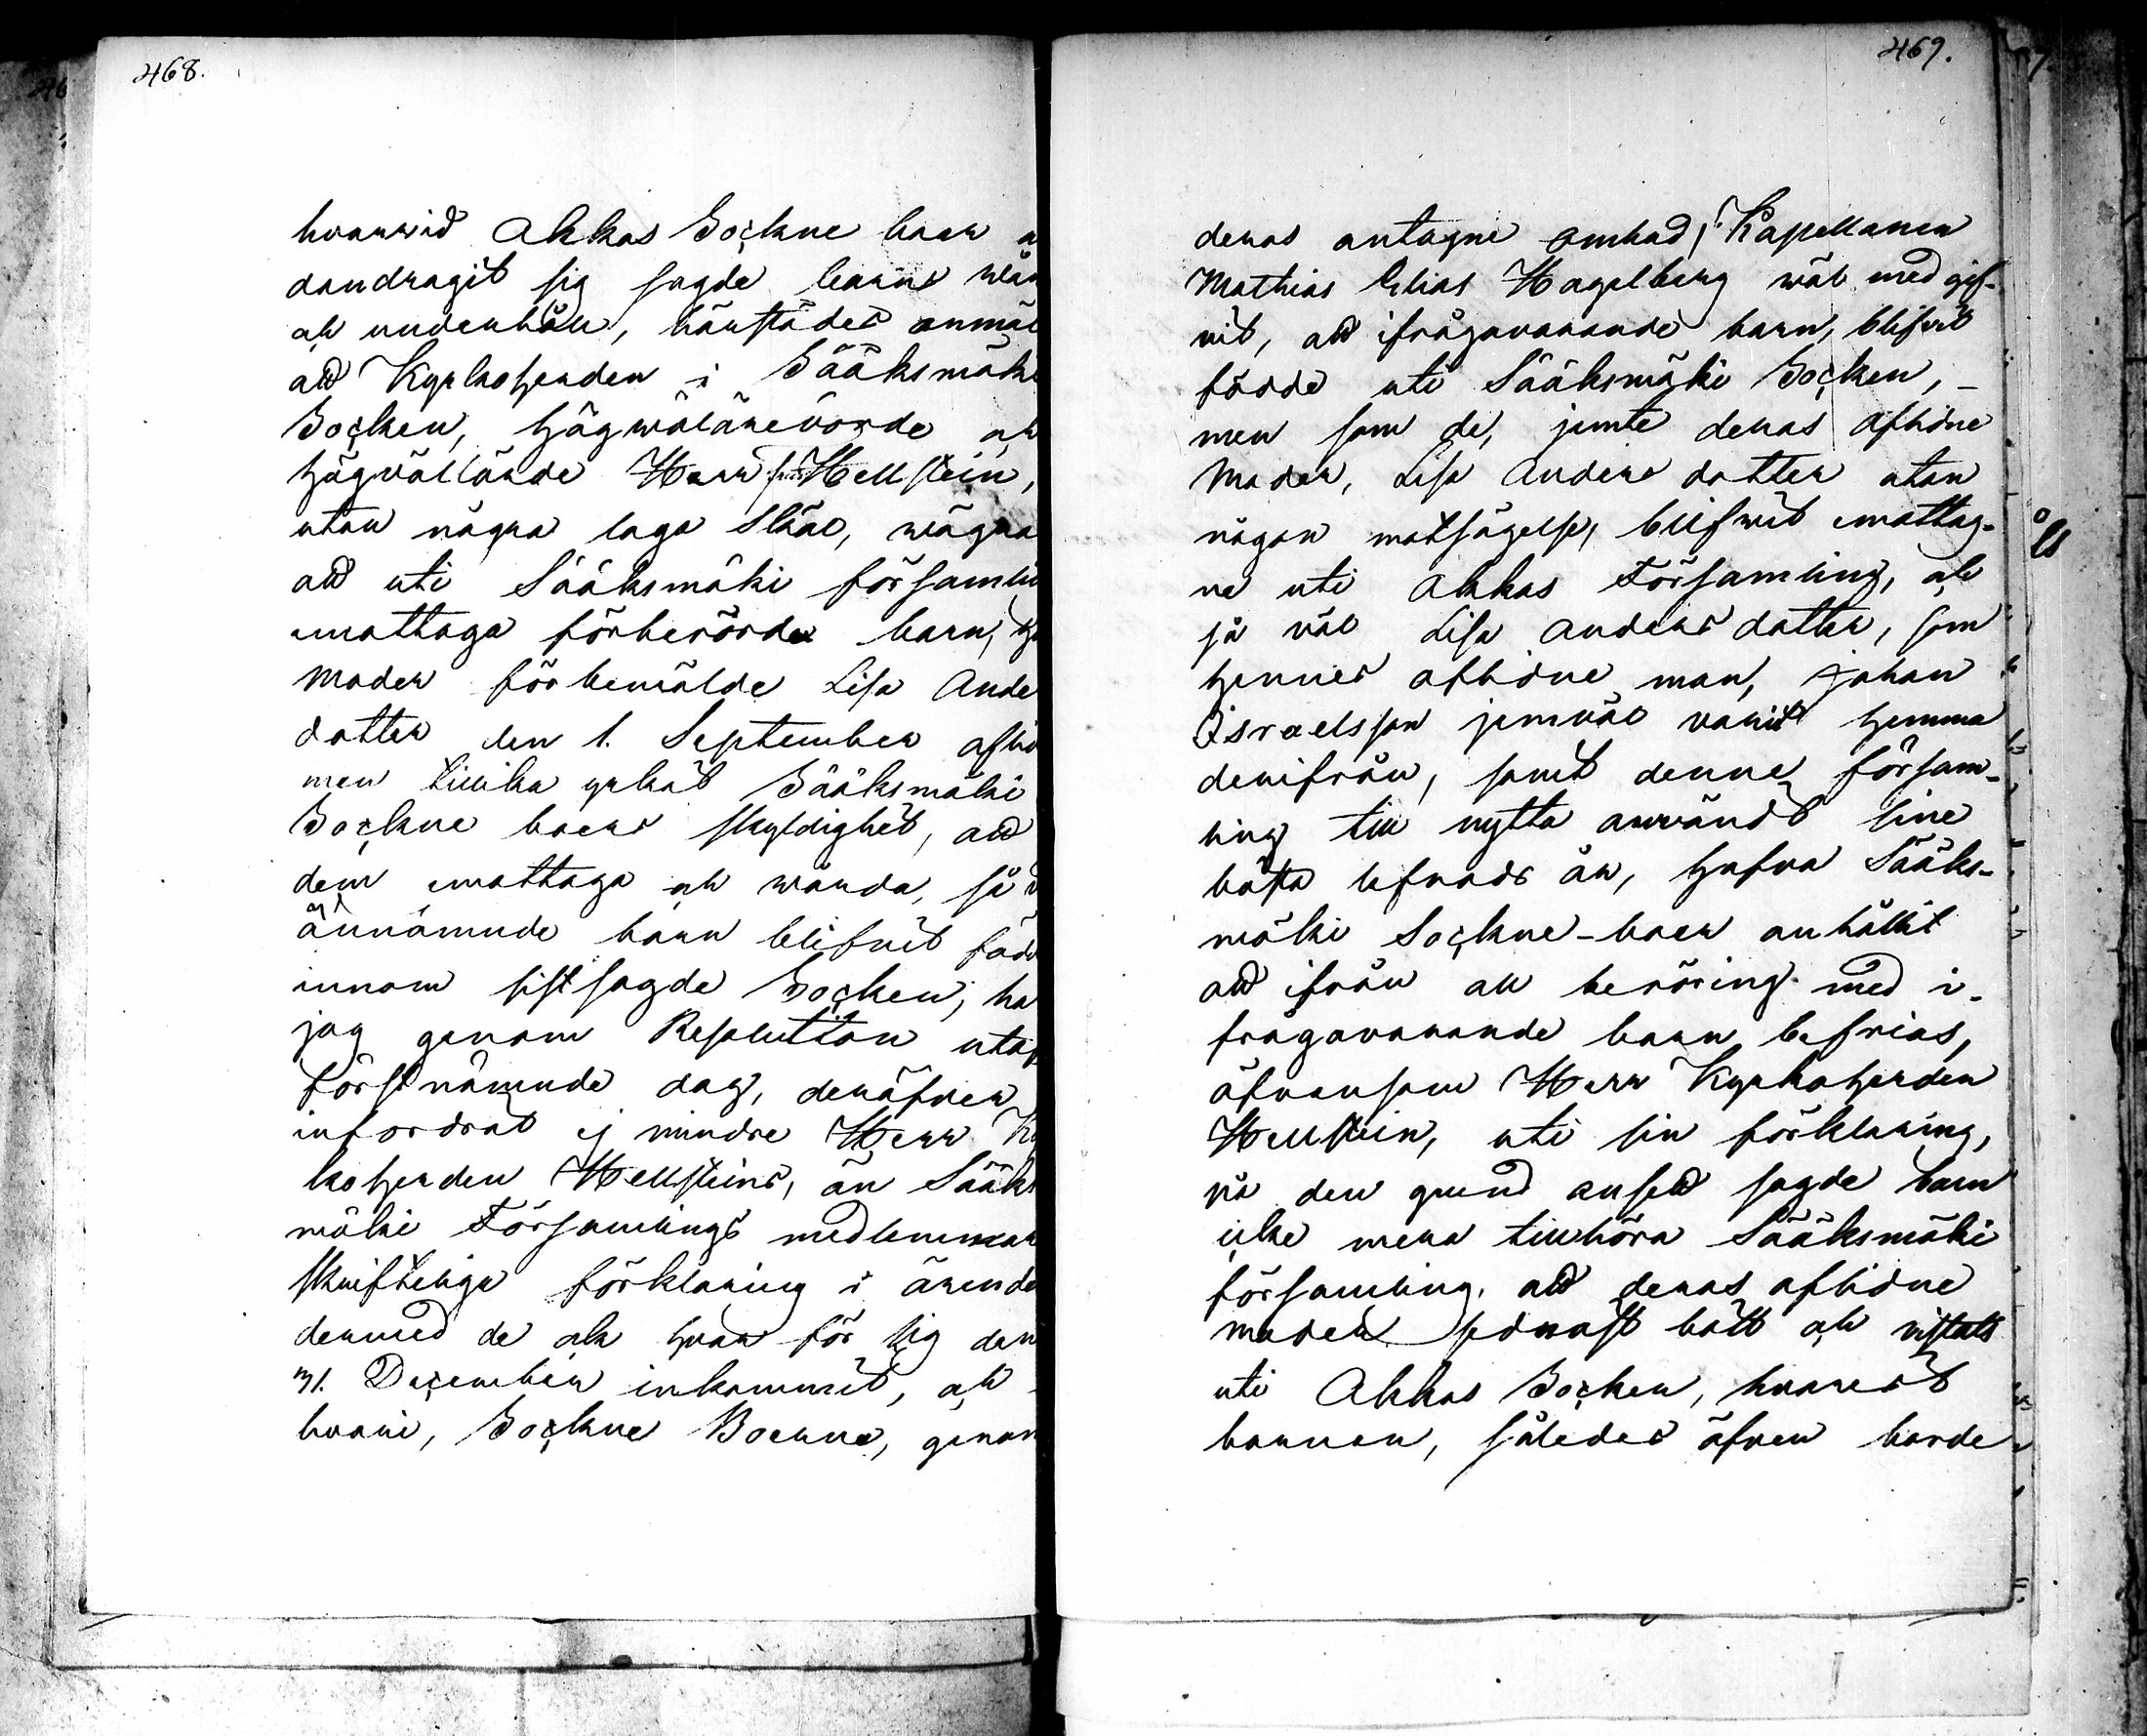 468.
hvarwid Akkas Sockne boer
dandragit sig sagde barns
och underhåll, härstädes anmäl
att Kyrkoherden i Sääksmäki
Socken, Högwälärewörde och
högvällärde Herr Hellstein,
utan några laga skäl, wägra
att uti Sääksmäki församlin
emottaga förberörde barn,
Moder förbemälde Lisa Ande
dotter den 1. September aflid
men tillika yrkat Sääksmäki
Sockne boers skyldighet, att
dem emottaga och wårda, så
ännämnde barn blifvit född
innom sistsagde Socken; ha
jag genom Resolution utaf
förstnämnde dag, deröfver
infordrat ej mindre Herr Ky
koherden Hellsteins, än Sääks
mäki Församlings medlemmar
skrifteliga förklaring i ärende
dermed de ock hvar för sig den
31. December inkommit, och
hvari, Sockne Boerne, genom
469.
deras antagne ombud, Kapellanen
Mathias Elias Hagelberg wäl medgif-
vit, att ifrågavarande barn, blifvit
födde uti Sääksmäki Socken, -
men som de, jemte deras aflidne
Moder, Lisa Anders dotter utan
någon motsägelse, blifwit emottag-
ne uti Akkas Församling, och
så väl Lisa Anders dotter, som
hennes aflidne man, Johan
Israelsson jemväl varit hemma
derifrån, samt denne församm-
ling till nytta användt sine
bästa lefnads år, hafva Sääks-
mäki Sockne-boer anhållit
att ifrån all beröring med i-
frågavarande barn befrias,
äfvensom Herr Kyrkoherden
Hellstein, uti sin förklaring,
på den grund ansett sagde barn
icke mera tillhöra Sääksmäki
församling, att deras aflidne
moder sednast bott och vistats
uti Akkas Socken, hvarest
barnen, således äfven borde